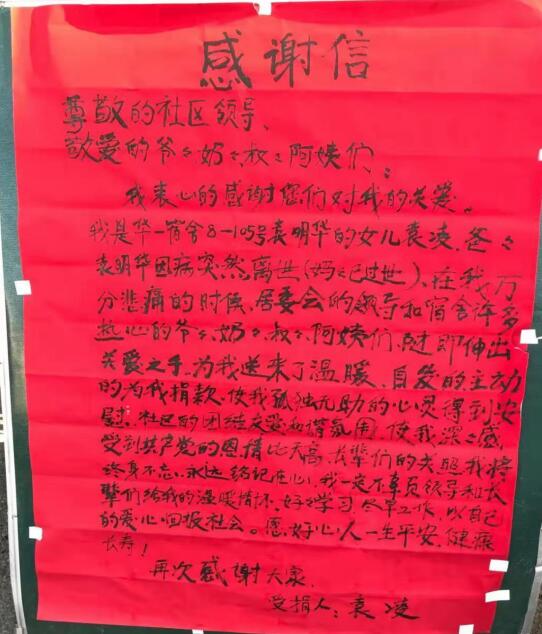 感谢信
尊敬的社区领导、
敬爱的爷々奶々叔々阿姨们：
我衷心的感谢您们对我的关爱。
我是华一宿舍8-105号袁明华的女儿袁凌、爸々
袁明华因病突然离世（妈々已过世）、在我万
分悲痛的时候、居委会的领导和宿舍许多
热心的爷々、奶々、叔々、阿姨们、随即伸出
关爱之手、为我送来了温暖、自发的主动
的为我捐款、使我孤独无助的心灵得到安
慰、社区的团结友爱和谐氛围、使我深々感
受到共产党的恩情比天高、长辈们的关照我将
终身不忘、永远铭记在心、我一定不辜负领导和长
辈们给我的温暖情怀、好々学习、尽早工作、以自己
的爱心回报社会。愿、好心人一生平安、健康
长寿！
再次感谢大家、
受捐人：袁凌